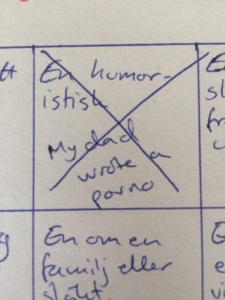 En humor-
istisk
My dad
wrote a
porno
En om en
familj eller
släkt.